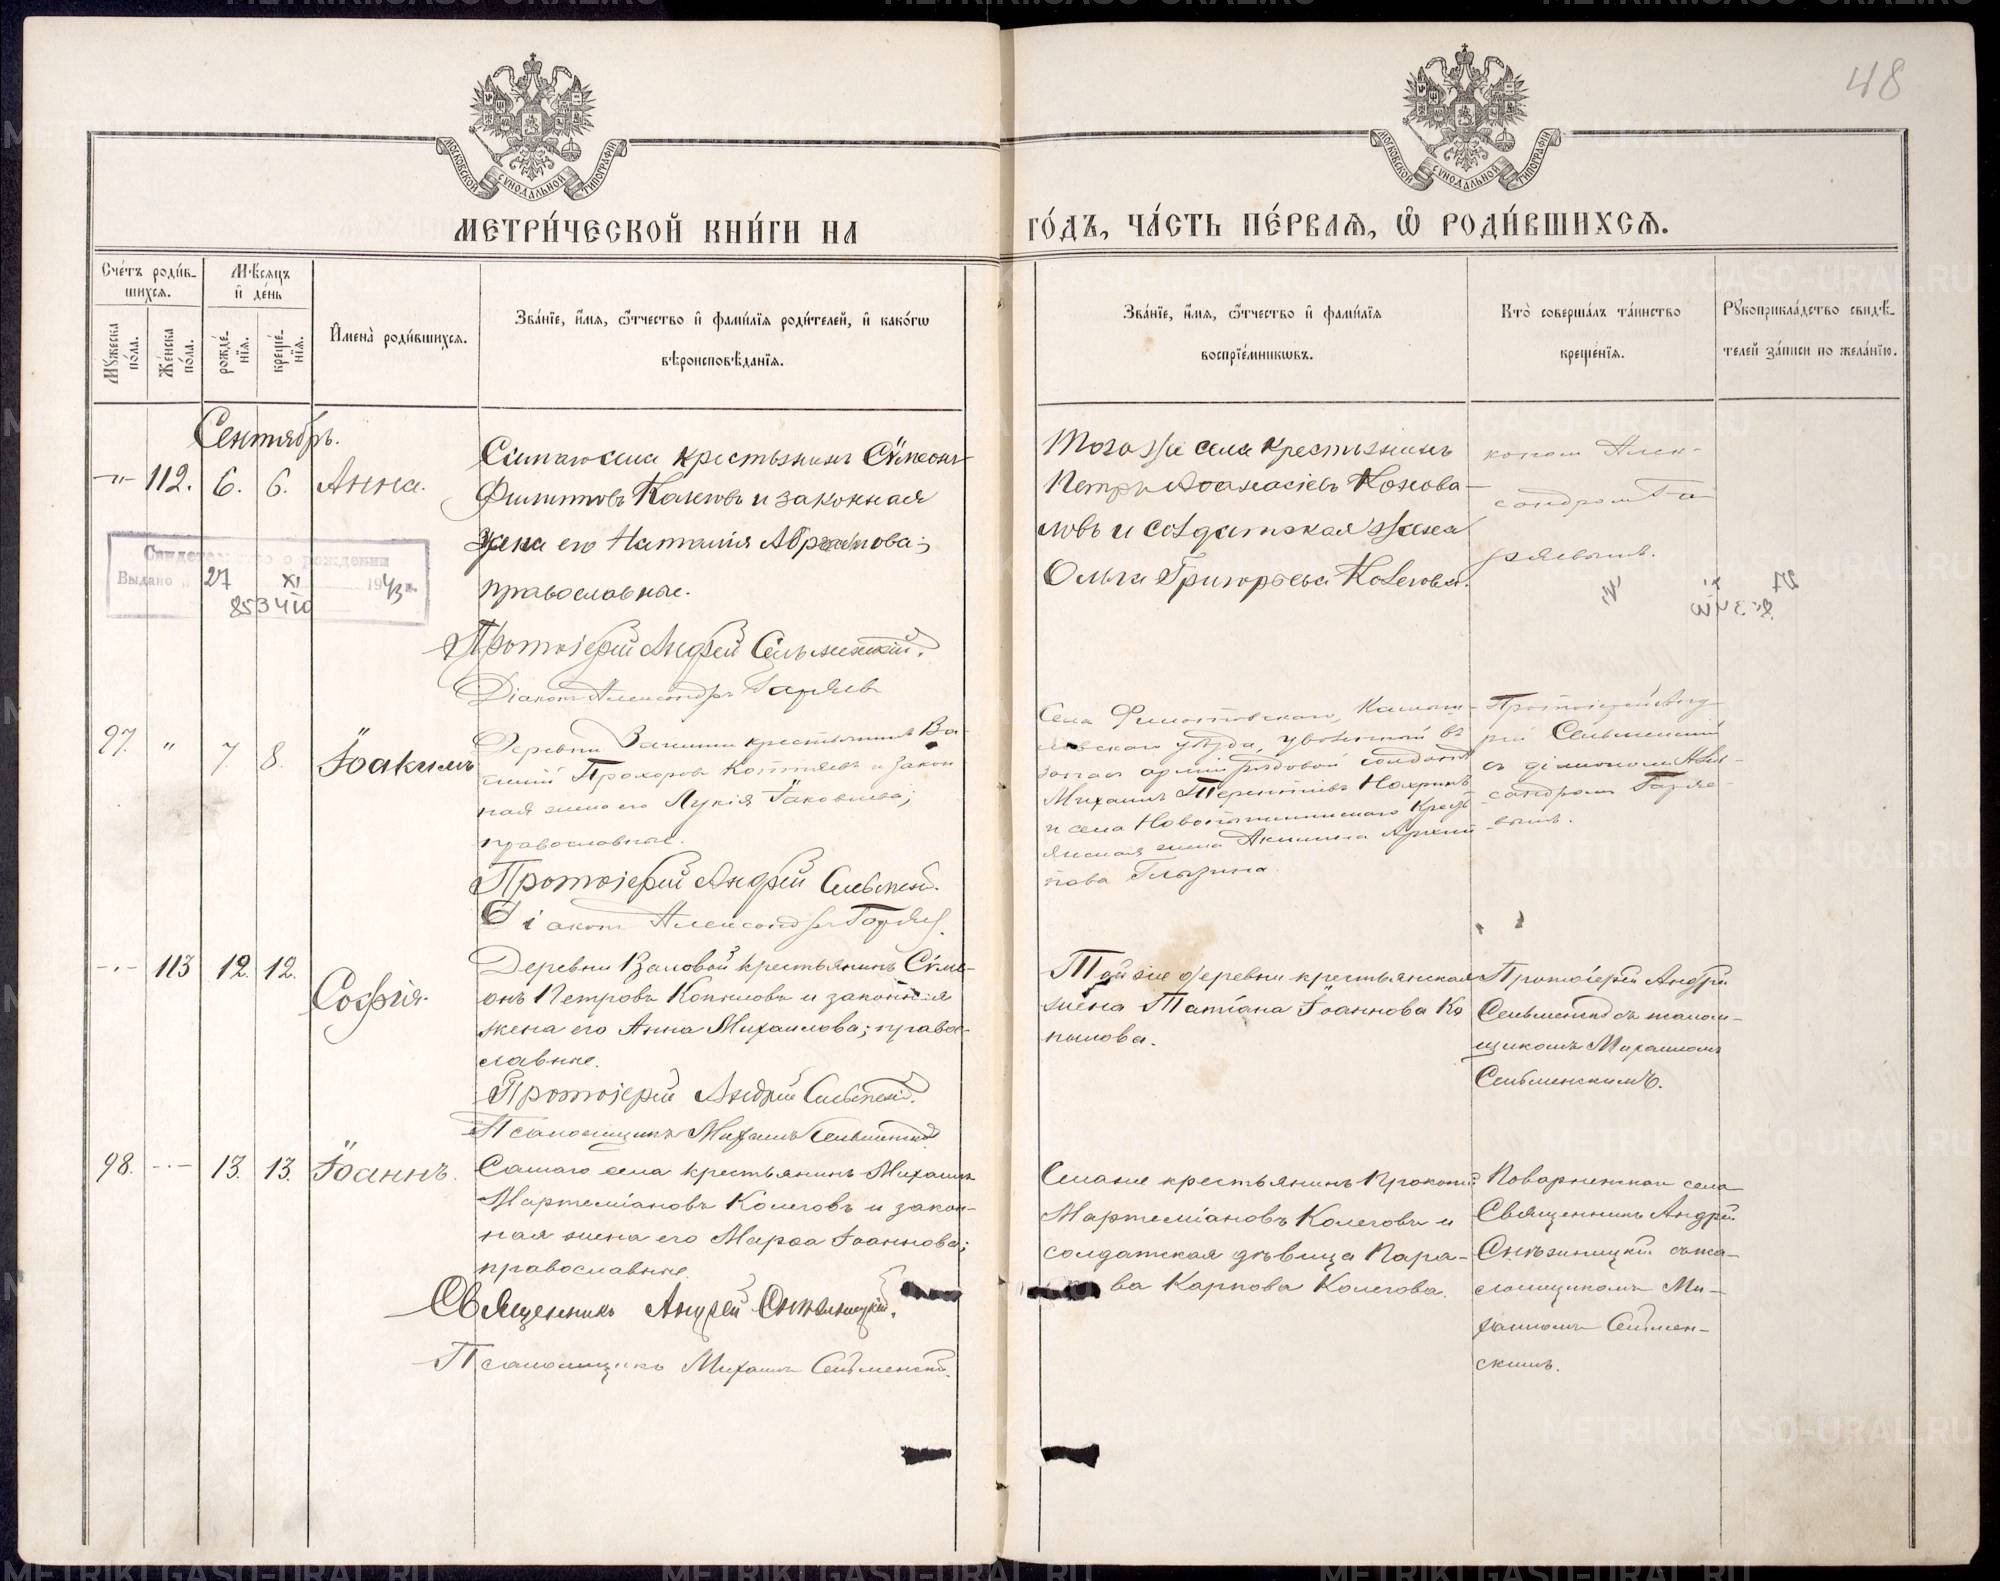 48
МОСКОВСКОЙ СѴНОДАЛЬНОЙ ТИПОГРАФІИ
МОСКОВСКОЙ СѴНОДАЛЬНОЙ ТИПОГРАФІИ
МЕТРИ́ЧЕСКОЙ КНИ́ГИ НА
ГО́ДЪ, ЧА́СТЬ ПЕ́РВАѦ, Ѡ҆ РОДИ́ВШИХСѦ.
Сче́тъ роди́в-
шихсѧ.
Мꙋжеска по́ла.
Же́нска по́ла.
Мѣ́сѧцъ
и҆ де́нь
рожде́-
нїѧ.
креще́-
нїѧ.
И҆мена̀ роди́вшихсѧ.
Зва́нїе, и҆́мѧ, ѻ҆́тчество и҆ фами́лїѧ роди́телей, и҆ како́гѡ
вѣроисповѣ́данїѧ.
Зва́нїе, и҆́мѧ, ѻ҆́тчество и҆ фами́лїѧ
воспрїе́мникѡвъ.
Кто̀ соверша́лъ та́инство
креще́нїѧ.
Рꙋкоприкла́дство свидѣ́-
телей за́писи по жела́нїю.
Сентябрь.
-"- 112. 6. 6. Анна.
Самаго села крестьянинъ Сѵмеонъ
Филипповъ Колеговъ и законная
жена его Наталія Абрамова;
православные.
Протоіерей Андрей Сельменскій.
Діаконъ Александръ Гаряевъ
Того же села крестьянинъ
Петръ Аѳанасіевъ Конова-
ловъ и солдатская жена
Ольга Григорьева Колегова.
кономъ Алек-
сандромъ Га-
ряевымъ.
Свидетельство о рождении
Выдано " 27 XI 1943 г.
97. " 7. 8. Іоакимъ
Деревни крестьянинъ Ва-
силій Прохоровъ и закон
ная жена его Лукія Іаковлева;
православные.
Протоіерей Андрей Сельменскій.
Діаконъ Александръ Гаряевъ
Села Камыш-
ловскаго уѣзда, уволенный въ
запасъ арміи рядовой солдатъ
Михаилъ Терентіевъ
и села Новопышминскаго Крест
янская жена Акилина Архип
пова Глызина.
Протоіерей Анд-
рей Сельменскій
съ діакономъ Алек-
сандромъ Гаряе-
вымъ.
-"- 113 12. 12. Софія.
Деревни крестьянинъ Сѵме-
онъ Петровъ Копыловъ и законная
жена его Анна Михаилова; право-
славные.
Протоіерей Андрей Сельменскій.
Псаломщикъ Михаилъ Сельменскій
Той же деревни крестьянская
жена Татіана Іоаннова Ко
пылова.
Протоіерей Андрей
Сельменскій съ псалом-
щикомъ Михаиломъ
Сельменскимъ.
98. -"- 13. 13. Іоаннъ.
Самаго села крестьянинъ Михаилъ
Мартеміановъ Колеговъ и закон-
ная жена его Марѳа Іоаннова;
православные.
Священникъ Андрей Снѣжницкій.
Псаломщикъ Михаилъ Сельменскій.
крестьянинъ Прокопій
Мартеміановъ Колеговъ и
солдатская дѣвица Пара-
ва Карпова Колегова.
Поварненскаго села
Священникъ Андрей
Снѣжницкій съ пса-
ломщикомъ Ми-
хаиломъ Сельмен-
скимъ.
METRIKI.GASO-URAL.RU